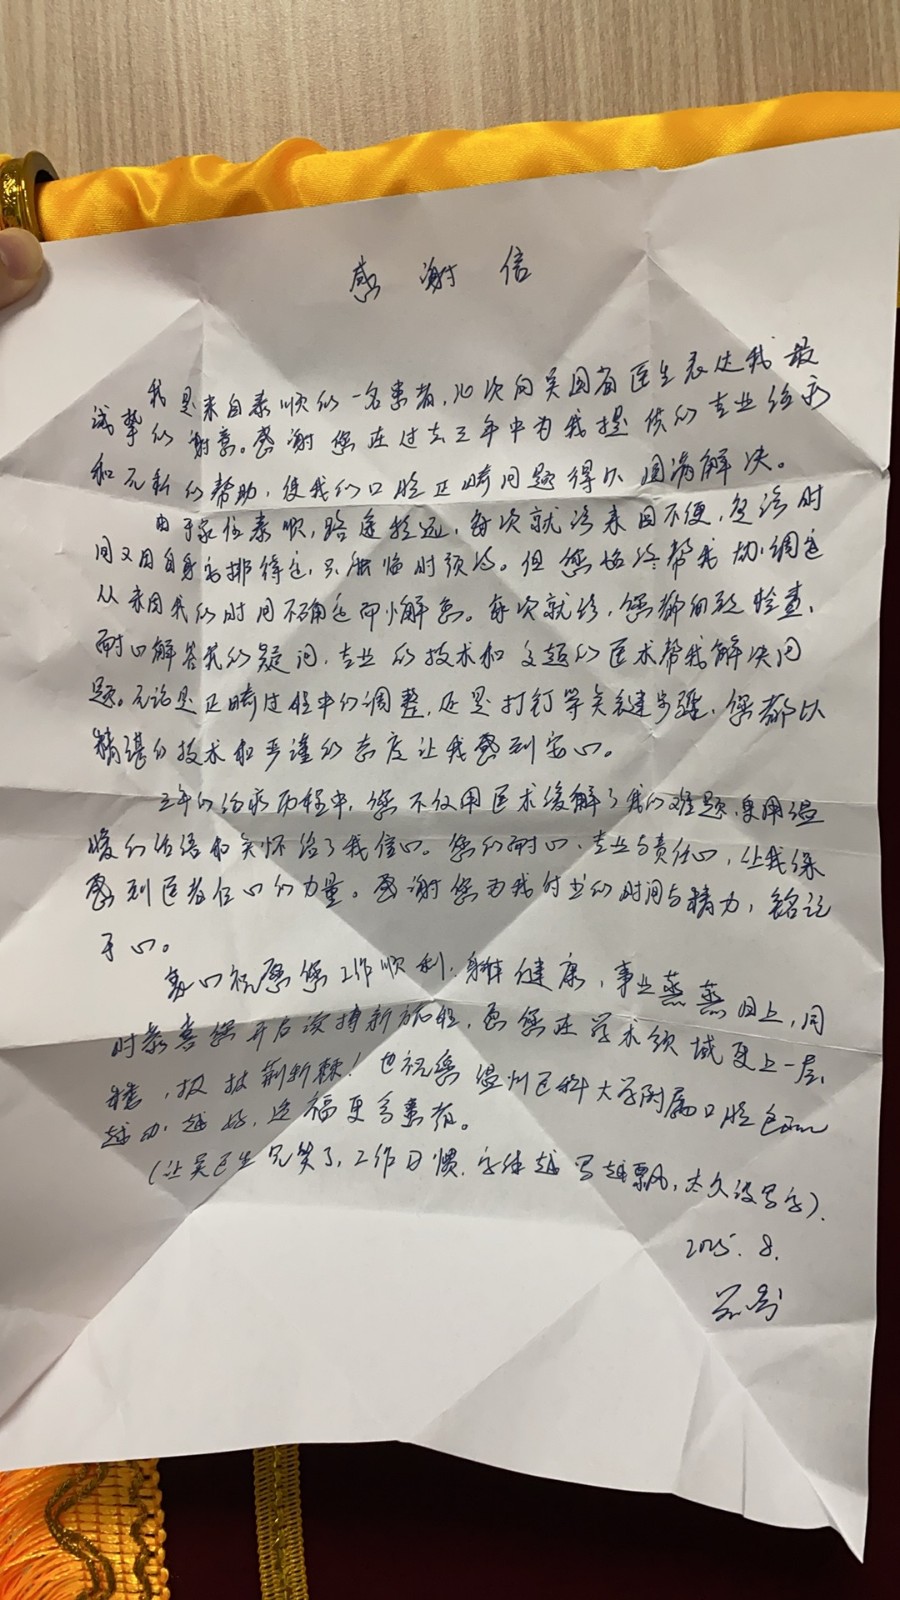 感谢信
我是来自泰顺的一名患者,此次向吴国省医生表达我最
诚挚的谢意。感谢您在过去三年中为我提供的专业诊疗
和无私的帮助,使我的口腔正畸问题得以圆满解决。
由于家住泰顺,路途较远,每次就诊来回不便,复诊时
间又因自身安排待定,只能临时预约。但您始终帮我协调
从未因我的时间不确定而懈怠。每次就诊,您都细致检查、
耐心解答我的疑问,专业的技术和 的医术帮我解决问
题。无论是正畸过程中的调整,还是打钉等关键步骤,您都以
精湛的技术和严谨的态度让我感到安心。
三年的治疗历程中,您不仅用医术缓解了我的难题,更用温
暖的话语和关怀给了我信心。您的耐心、专业与责任心,让我深
感到医者仁心的力量。感谢您为我付出的时间与精力,铭记
于心。
衷心祝愿您工作顺利,身体健康,事业蒸蒸日上,同
时恭喜您开启 博新 ,愿您在学术领域更上一层
楼,披荆斩棘!也祝愿温州医科大学附属口腔医院
越办越好,造福更多患者。
(让吴医生见笑了,工作习惯,字体越写越飘,太久没写字).
2025.8.